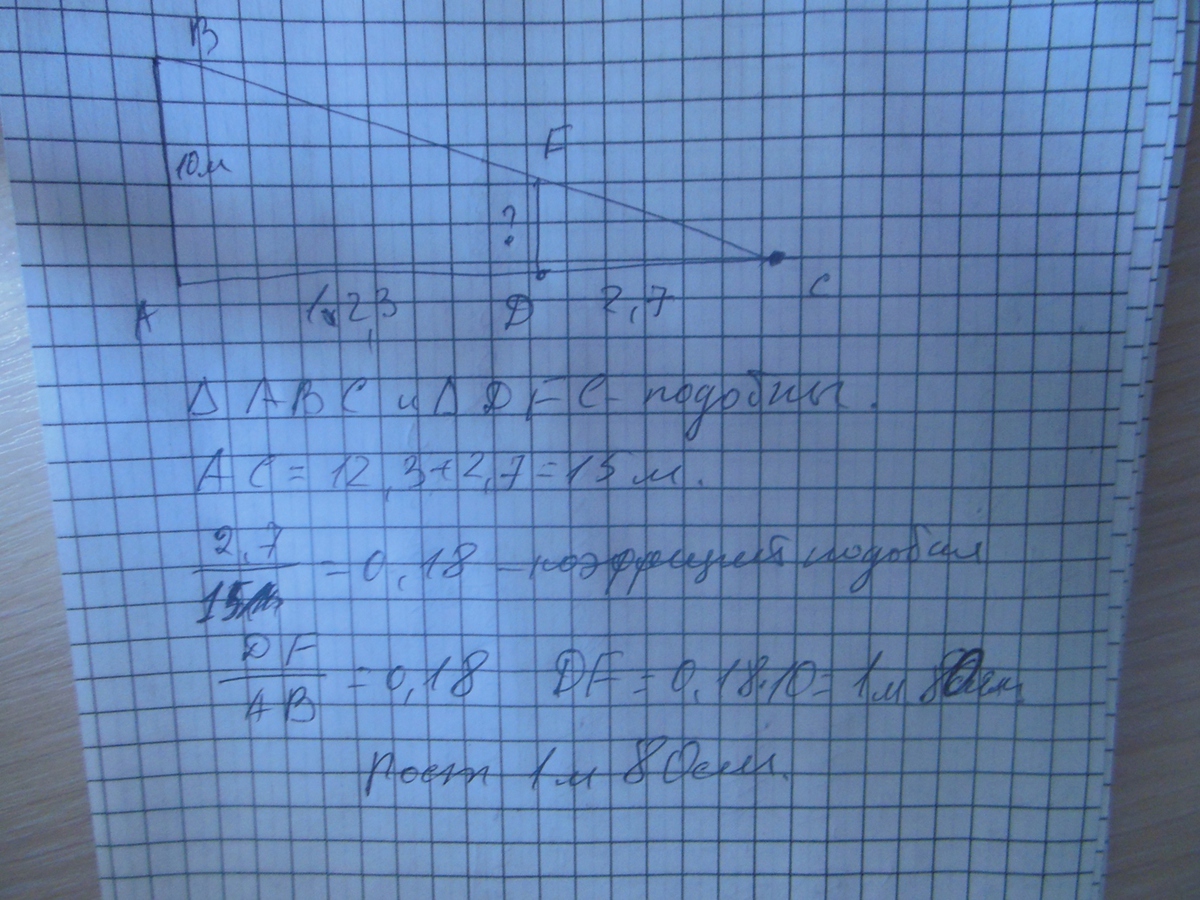 B
10м
F
?
A
12,3
D
2,7
C
Δ ABC и Δ DFC - подобны.
AC = 12,3 + 2,7 = 15 м.
2,7
15
= 0,18 - коэффициет подобия
DF
AB
= 0,18 DF = 0,18·10 = 1м 80см.
Рост 1 м 80см.